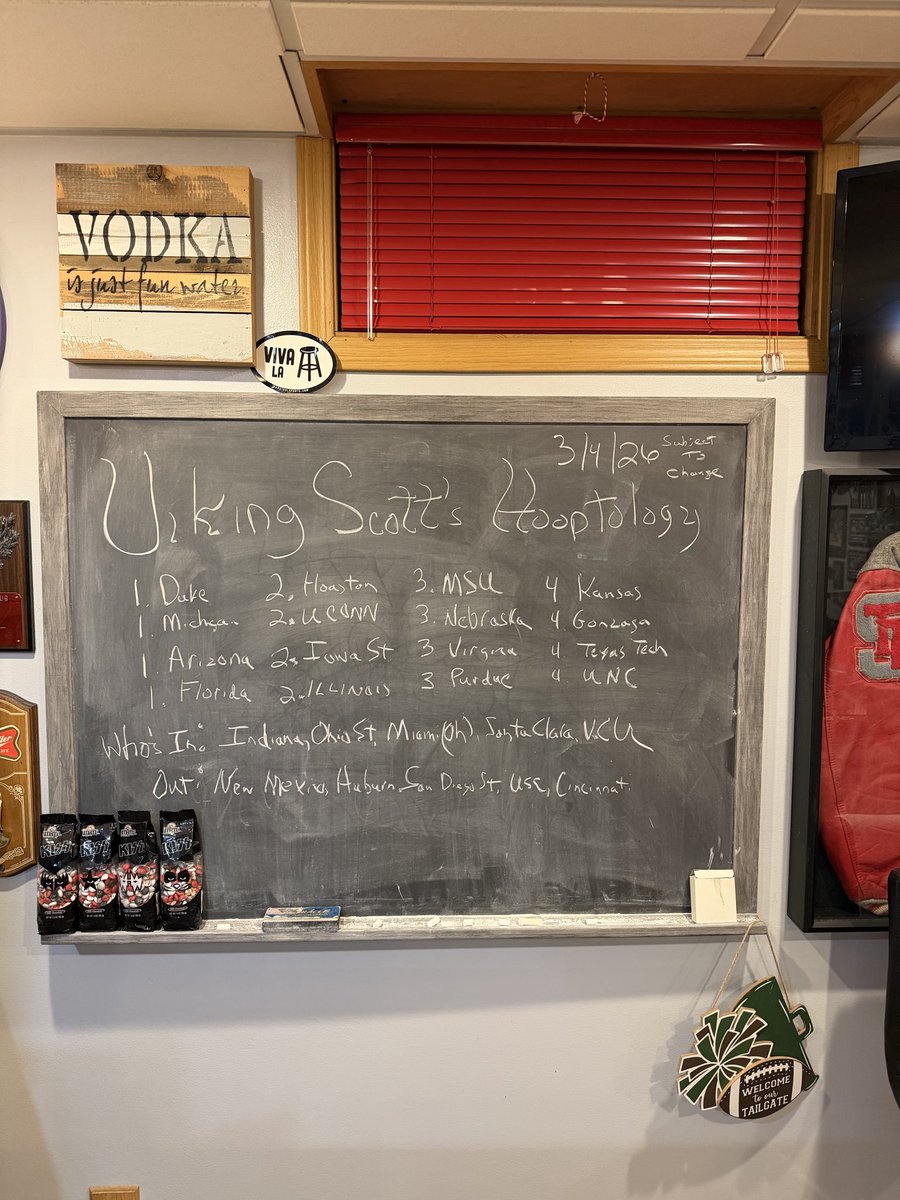 VODKA
is just fun water.
VIVA
LA
3/4/26 Subject
To
Change
Viking Scott's Hooptology
1. Duke 2. Hoaston 3. MSU 4 Kansas
1. Michgan 2. UCONN 3. Nebraska 4. Gonzaga
1 Arizona 2. Iowa St 3 Virginia 4 Texas Tech
1. Florida 2. ILLINOIS 3 Purdue 4 UNC
Who's In: Indiana, Ohio St, Miami (Oh), Santa Clara, VCU
Out: New Mexico, Auburn, San Diego St, USC, Cincinnati
KISS KISS KISS KISS
WELCOME
to our
TAILGATE